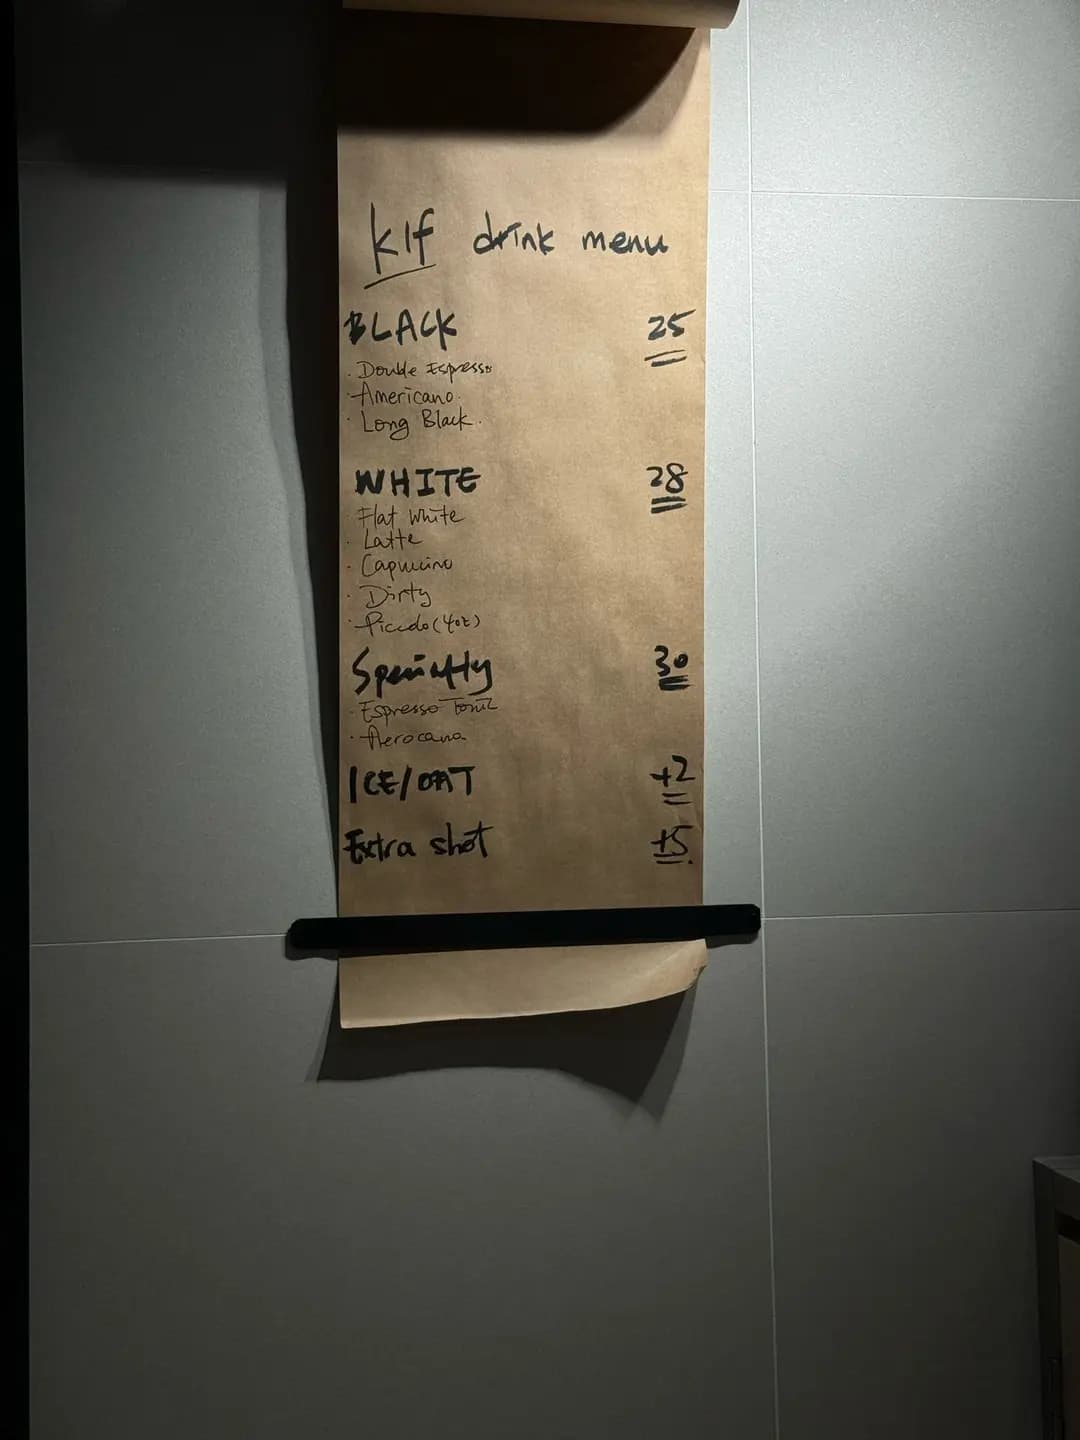 klf drink menu
BLACK 25
· Double Espresso
· Americano.
· Long Black.
WHITE 28
Flat White
· Latte
· Capuccino
· Dirty
· Piccolo (4oz)
Specialty 30
· Espresso Tonic
· Aerocano
ICE/OAT +2
Extra shot +5